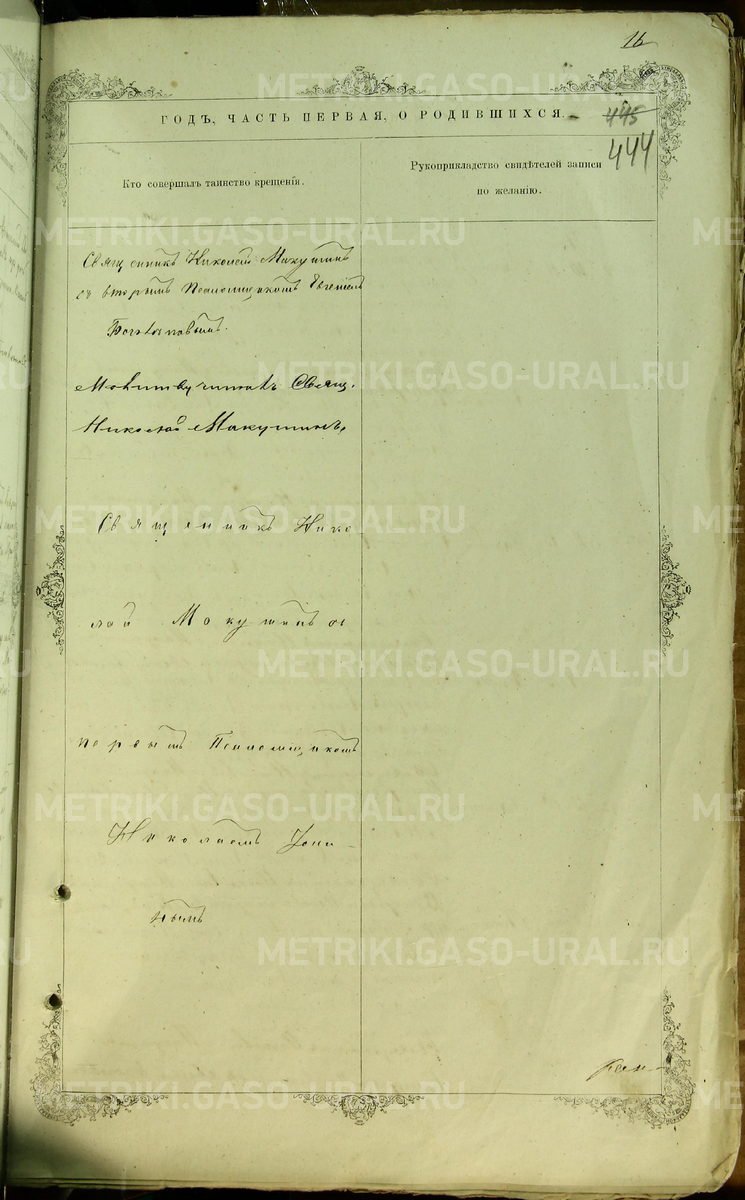 16
ГОДЪ, ЧАСТЬ ПЕРВАЯ, О РОДИВШИХСЯ.
445
444
Кто совершалъ таинство крещенія.
Рукоприкладство свидѣтелей записи
по желанію.
Священникъ Николай Макушинъ
съ вторымъ Псаломщикомъ Евгеніемъ
Молитву читалъ Свящ.
Николай Макушинъ.
Священникъ Нико
лай Мокушинъ съ
первымъ Псаломщикомъ
Николаемъ
нымъ
METRIKI.GASO-URAL.RU